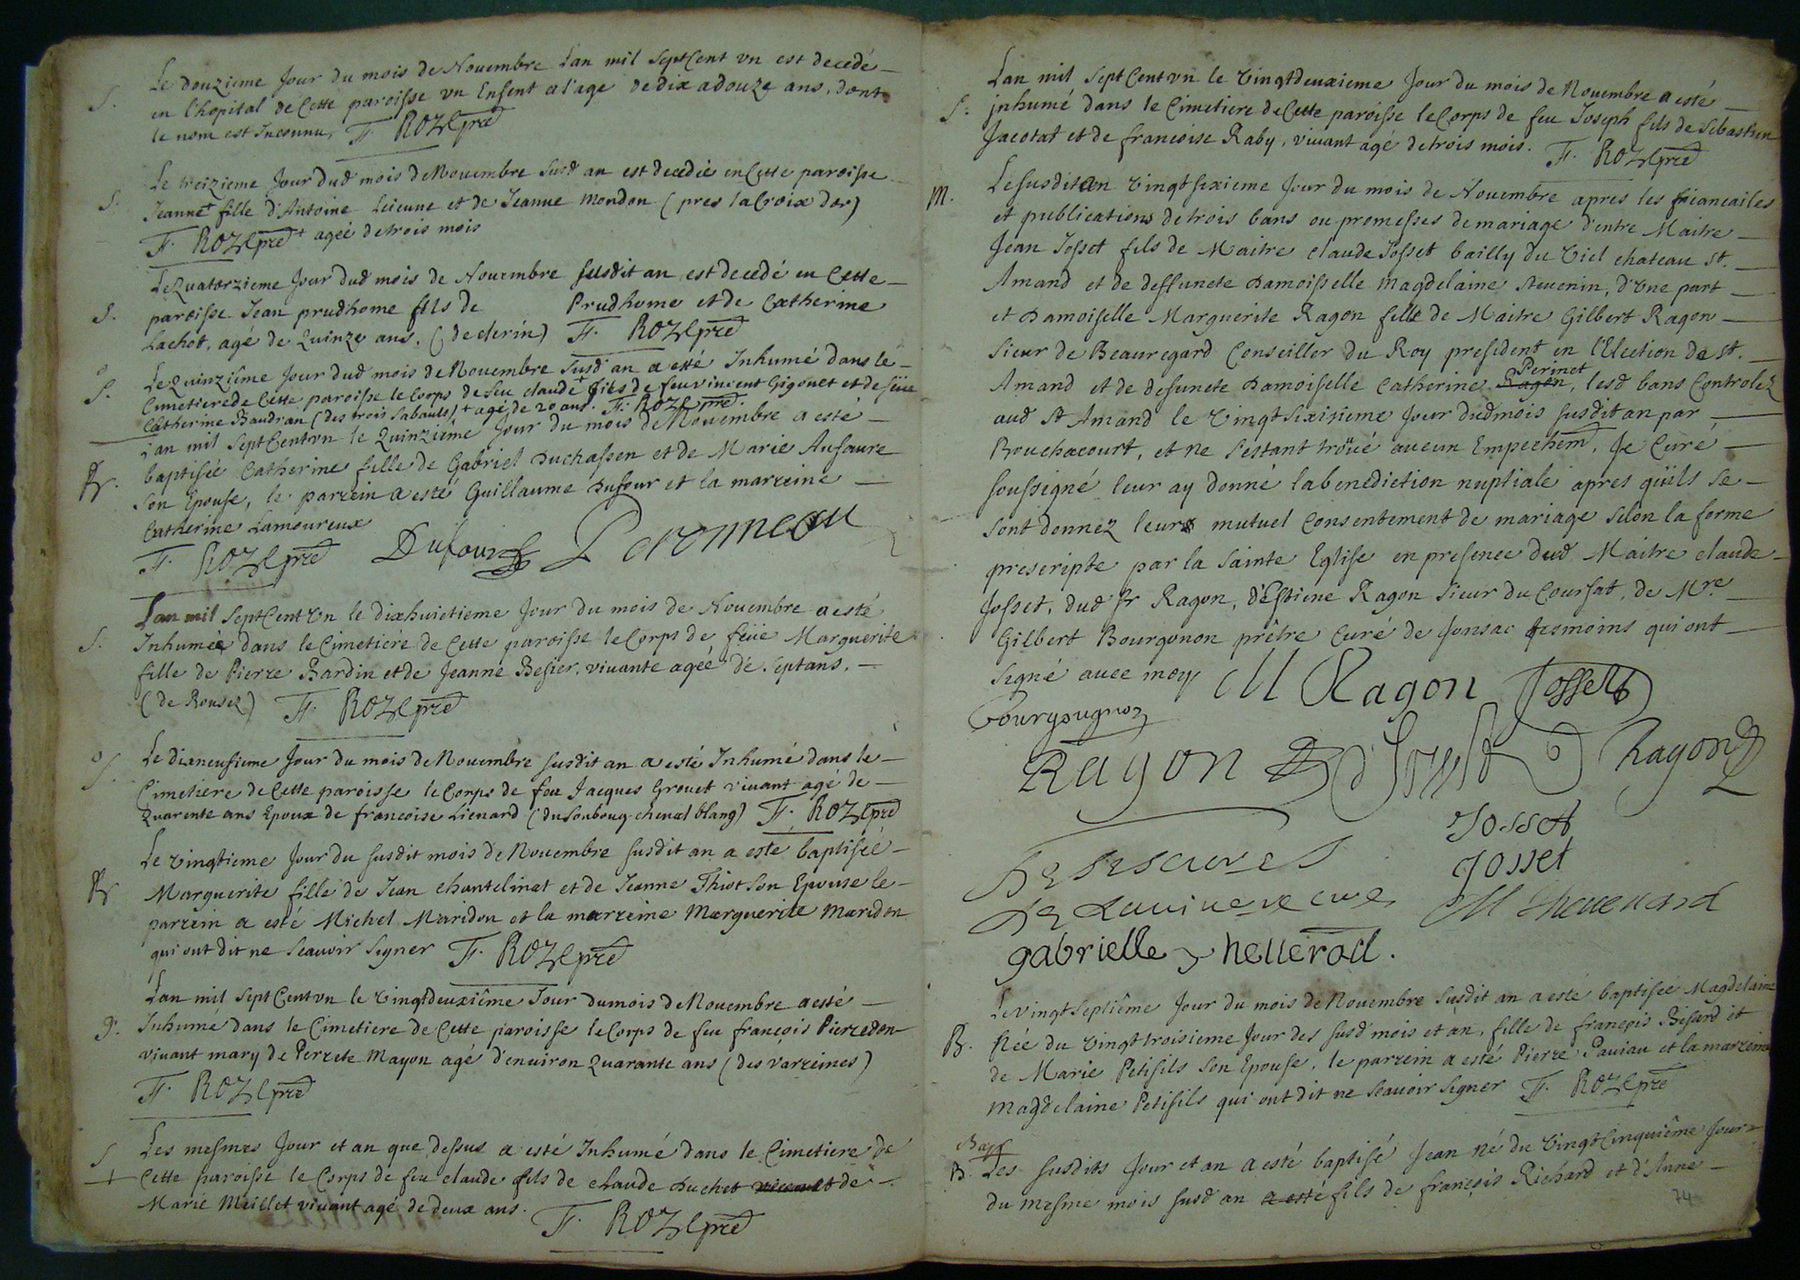 Le douzieme Jour du mois de Nouembre Lan mil SeptCent vn est decedé
S. en l'hopital de Cette paroisse vn Enfent a l'age de dix a douze ans, dont
le nom est Inconnu, F. ROZE pred
Le treizieme Jour dud mois de Nouembre susd an est decedée en Cette paroisse
S. Jeanne + fille d'Antoine Leieune et de Jeanne Mondon (pres la Croix dor)
F. ROZE pred + ageé de trois mois
Le Quatorzieme Jour dud mois de Nouembre susdit an est decedé en Cette
S. paroisse Jean prudhome fils de Prudhome et de Catherine
Lachot, agé de Quinze ans, (de clerin) F. ROZE pred
Le Quinziême Jour dud mois de Nouembre susd an a esté Inhumé dans le
S. Cimetiere de Cette paroisse le Corps de feu claude + fils de feu vincent Gigonet et de feüe
Catherine Baudran (des trois Sabauts) + agé de 20 ans. F. ROZE pred.
Lan mil SeptCentvn le Quinziéme Jour du mois de Nouembre a esté
B. baptisée Catherine fille de Gabriel Duchassen et de Marie Aufaure
Son Epouse, le parrein a esté Guillaume Dufour et la marreine
Catherine Lamoureux
F. ROZE pred Dufour Peronneau
Lan mil SeptCent Vn le dixhuictieme Jour du mois de Nouembre a esté
S. Inhumée dans le Cimetiere de Cette paroisse le Corps de feüe Marguerite
fille de Pierre Bardin et de Jeanne Besier, viuante ageé de Septans.
(de Rousez) F. ROZE pred
Le dixneufieme Jour du mois de Nouembre susdit an a esté Inhumé dans le
S. Cimetiere de Cette paroisse le Corps de feu Jacques Grouet viuant agé de
Quarente ans Epoux de francoise Lienard (du foubourg cheual blang) F. ROZE pred
Le vingtieme Jour du susdit mois de Nouembre susdit an a esté baptisée
B. Marguerite fille de Jean chantelinat et de Jeanne Thiot Son Epouse le
parrein a esté Michel Maridon et la marreine Marguerite Maridon
qui ont dit ne scauoir signer F. ROZE pred
Lan mil SeptCentvn le Vingtdeuxiême Jour dumois de Nouembre a esté
S. Inhumé dans le Cimetiere de Cette paroisse le Corps de feu françois Pierredon
viuant mary de Perrete Mayon agé d'enuiron Quarante ans (des varreines)
F. ROZE pred
Les mesmes Jour et an que dessus a esté Inhumé dans le Cimetiere de
S. Cette paroisse le Corps de feu claude fils de claude Duchet et de
Marie Meillet viuant agé de deux ans. F. ROZE pred
Lan mil SeptCentvn le Vingtdeuxieme Jour du mois de Nouembre a esté
S. jnhumé dans le Cimetiere de Cette paroisse le Corps de feu Joseph fils de Sebastien
Jacotat et de francoise Raby, viuant agé de trois mois. F. ROZE pred
M. Le susdit an Vingtsixieme Jour du mois de Nouembre apres les fiêancailes
et publications de trois bans ou promesses de mariage d'entre Maitre
Jean Josset fils de Maitre claude Josset bailly du Viel chateau St.
Amand et de deffuncte Damoisselle Magdelaine Steuenin, d'Vne part
et Damoiselle Marguerite Ragon fille de Maitre Gilbert Ragon
Sieur de Beauregard Conseiller du Roy president en l'Election de St.
Perinet
Amand et de defuncte Damoiselle Catherine Ragon, lesd bans Controlez
aud St Amand le Vingtsixisieme Jour dudmois susdit an par
Bouchacourt, et ne s'estant trôüué aucun Empechemt, Je Curé
soussigné leur ay donné la benediction nuptiale apres qu'ils se
sont donnez leurs mutuel Consentement de mariage selon la forme
prescripte par la Sainte Eglise en presence dud Maitre claude
Josset, dud Sr Ragon, d'Estiene Ragon Sieur du Coursat, de Mre
Gilbert Bourgonon prêtre Curé de Jonsac tesmoins qui ont
signé auec moy M Ragon Josset
Bourgougnon
Ragon Josset Ragon
Josset
Josset
gabrielle hellerad.
Le vingtseptiême Jour du mois de Nouembre susdit an a esté baptisée Magdelaine
B. Née du Vingttroisieme Jour des susd mois et an, fille de françois Besard et
de Marie Petifils Son Epouse, le parrein a esté Pierre Pauiau et la marreine
Magdelaine Petifils qui ont dit ne scauoir signer F. ROZE pred
Bap
B. Les susdits Jour et an a esté baptisé Jean né du VingtCinquiême Jour
du mesme mois susd an a esté fils de françois Richard et d'Anne
74